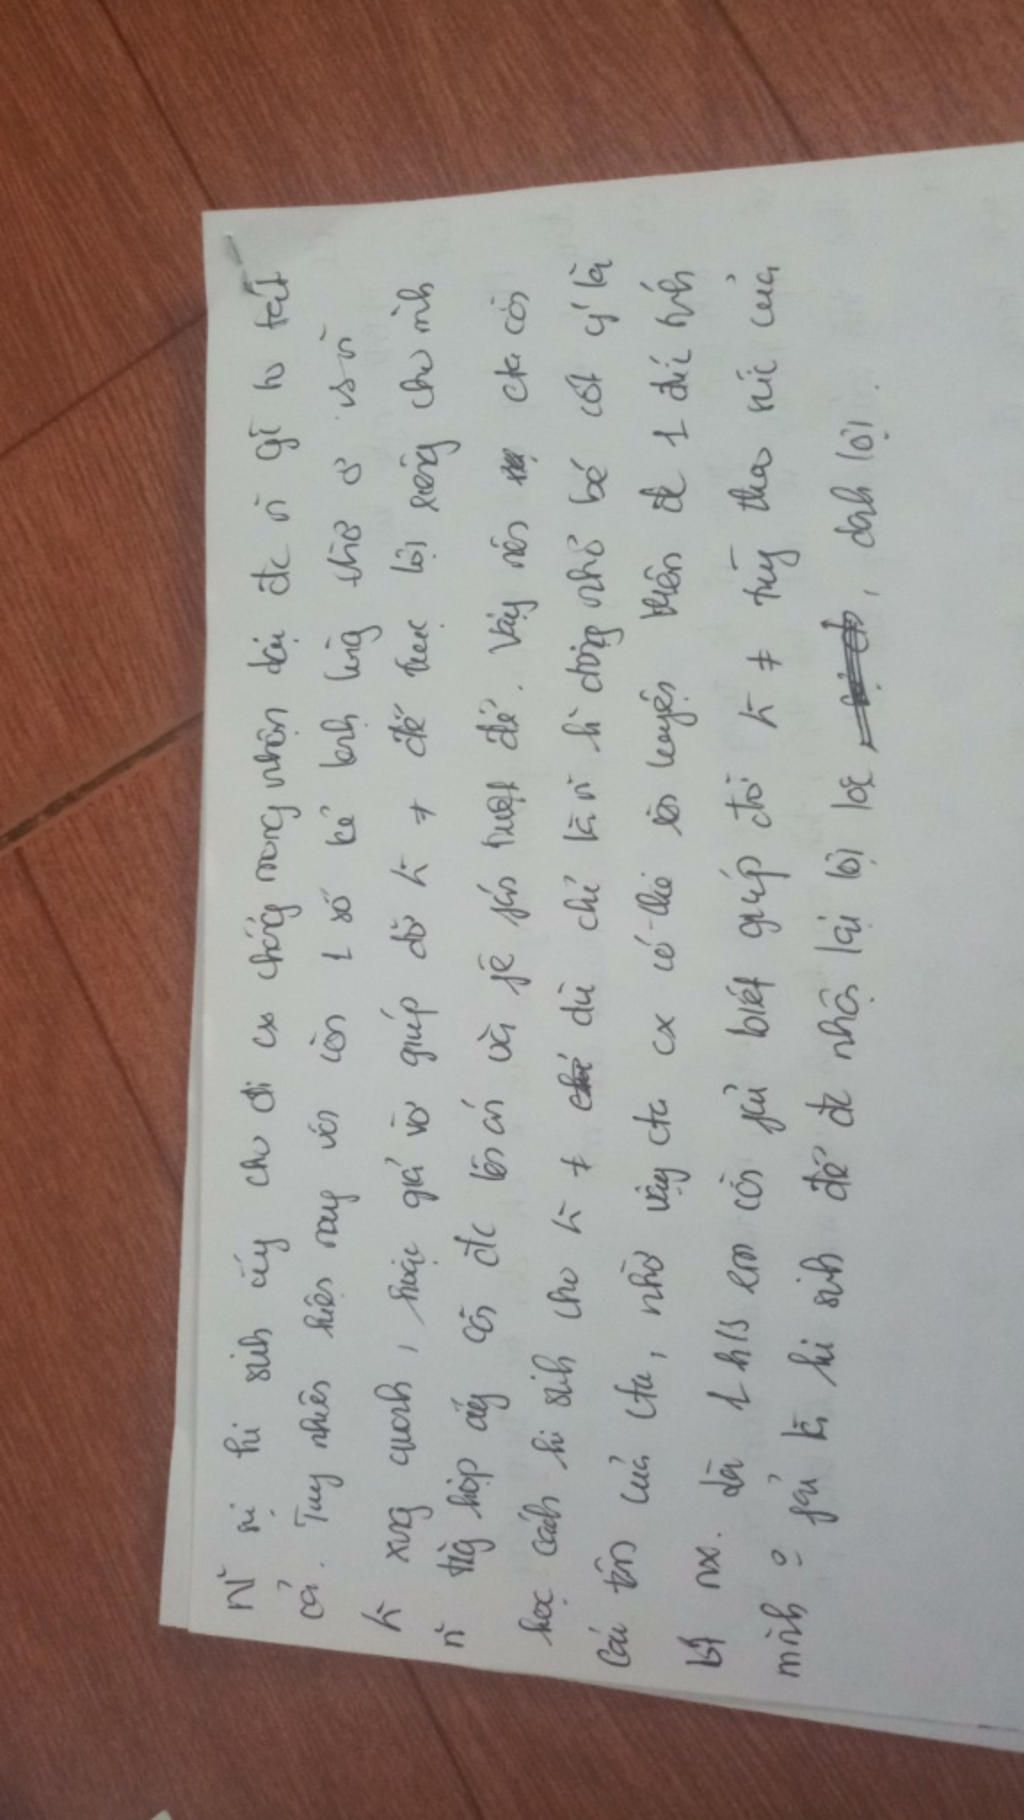 N~ sự hi sinh ấy cho đi cx chẳng mong nhận lại đc vì gì to tát
cả. Tuy nhiên hiện nay vẫn còn 1 số kẻ lạnh lùng thờ ơ vs n~
ng xung quanh, hoặc giả vờ giúp đỡ ng ≠ để trục lợi riêng cho mình
n~ trg hợp ấy cần đc lên án và phê phán triệt để. Vậy nên cta cần
học cách hi sinh cho ng ≠ dù chỉ là n~ hành động nhỏ bé cốt ý là
cái tâm của cta, nhờ vậy cta cx có thể rèn luyện thêm đc 1 đức tính
tốt nx. Là 1 h/s em cần phải biết giúp đỡ ng ≠ tùy theo sức của
mình = phải là hi sinh để đc nhận lại lợi lộc, danh lợi.